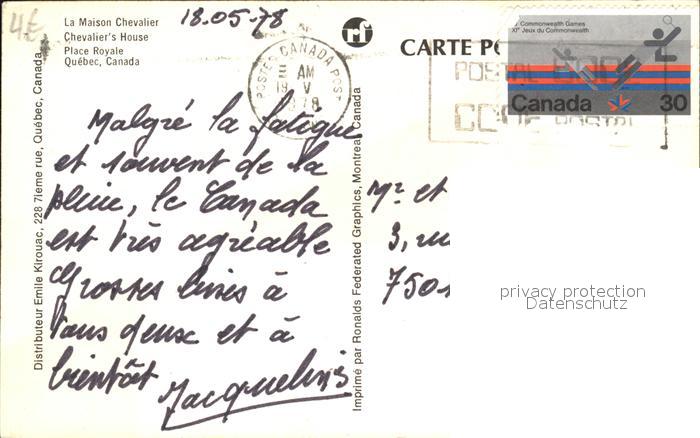 4€
La Maison Chevalier
Chevalier's House
Place Royale
Québec, Canada
18.05-78
rf
CARTE PO
POSTES CANADA POST
AM
19 V
1978
Commonwealth Games
XIes Jeux du Commonwealth
Canada 30
POSTAL CODE
CODE POSTAL
Malgré la fatigue
et souvent de la
pluie, le Canada
est très agréable
Grosses bises à
tous deux et à
bientôt
Jacqueline
Distributeur Emile Kirouac, 228 7ieme rue, Québec, Canada
Imprimé par Ronalds Federated Graphics, Montreal, Canada
Mr et
3, ru
7501
privacy protection
Datenschutz